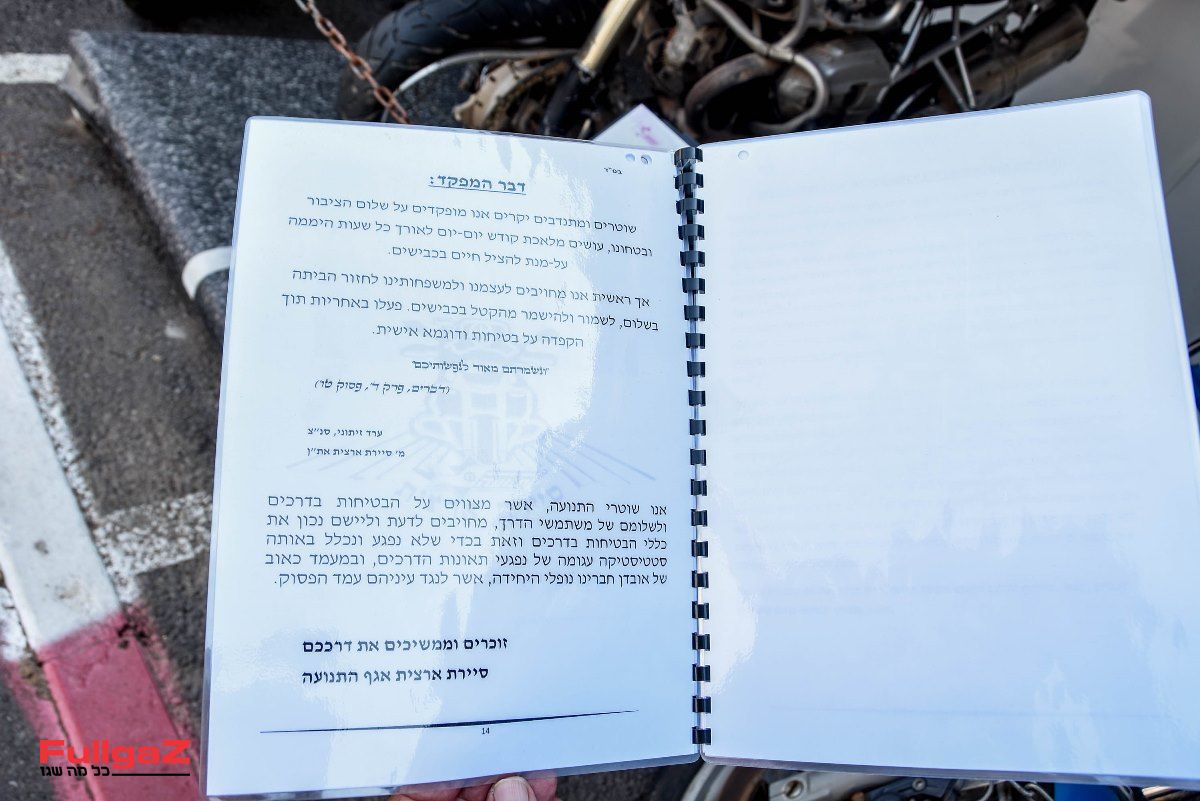 בס"ד
דבר המפקד:
שוטרים ומתנדבים יקרים אנו מופקדים על שלום הציבור
ובטחונו, עושים מלאכת קודש יום-יום לאורך כל שעות היממה
על-מנת להציל חיים בכבישים.
אך ראשית אנו מחויבים לעצמנו ולמשפחותינו לחזור הביתה
בשלום, לשמור ולהישמר מהקטל בכבישים. פעלו באחריות תוך
הקפדה על בטיחות ודוגמא אישית.
"ונשמרתם מאוד לנפשותיכם"
(דברים, פרק ד', פסוק טו')
ערד זיתוני, סנ"צ
מ' סיירת ארצית את"ן
אנו שוטרי התנועה, אשר מצווים על הבטיחות בדרכים
ולשלומם של משתמשי הדרך, מחויבים לדעת וליישם נכון את
כללי הבטיחות בדרכים וזאת בכדי שלא נפגע ונכלל באותה
סטטיסטיקה עגומה של נפגעי תאונות הדרכים, ובמעמד כאוב
של אובדן חברינו נופלי היחידה, אשר לנגד עיניהם עמד הפסוק.
זוכרים וממשיכים את דרככם
סיירת ארצית אגף התנועה
14
FullgaZ
כל מה שגז